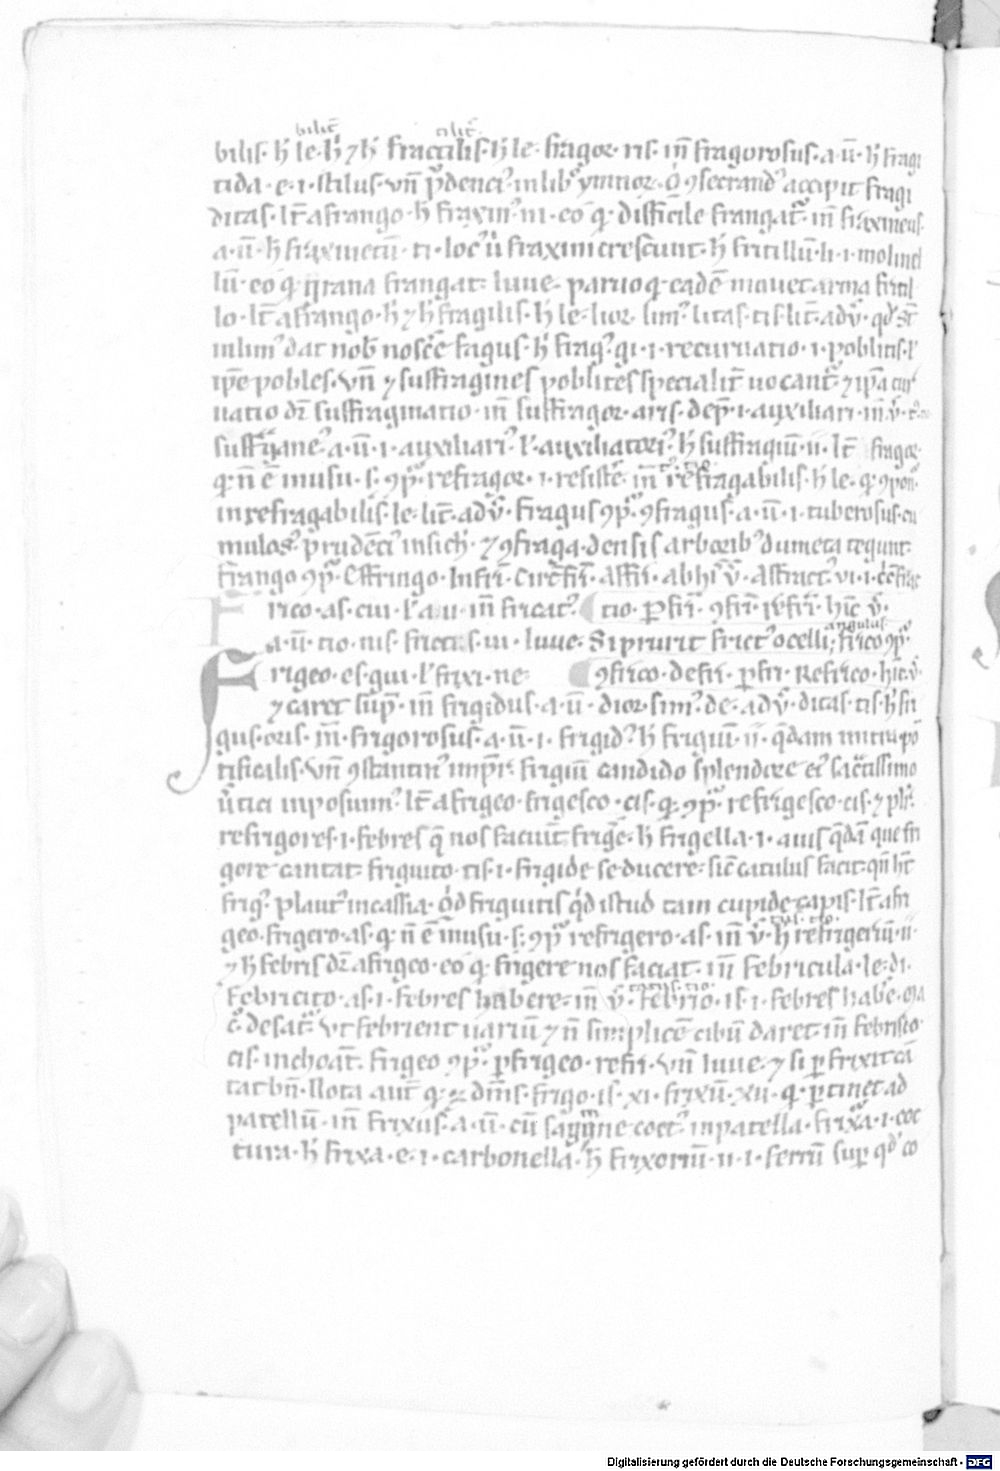 bilit̄ tilit̄.
bilis· ħ le·ħ ⁊ ħ fractilis·ħ le· fragor· ris· in̄ fragorosus·a·ū· ħ fragi
tida·e·i·stilus·vn̄ p̄denciꝰ in libꝰ ymnior· accipit fragi
ditas·lt̄ afrango·ħ fraxinꝰ ni·eo ꝙ difficile frangat᷑· in̄ fraxineus·
a·ū· ħ fraxinetū·ti·locꝰ u̇ fraxini crescunt·ħ fritillū·li·i·molinel
lū·eo ꝙ grana frangat· Iuue· paruoq· eadē mouet arma fritil
lo·lt̄ afrango·ħ ⁊ ħ fragilis·ħ le·lior· simꝰ litas·tis·lit̄·adv̄·qd̓ st̄
inlimꝰ dat nob̄ nosc̄e fagus·ħ fragꝰ·gi·i·recuruatio·i·poblitis·l̓
ip̄e pobles·vn̄ ⁊ suffragines poblites specialit̄ uocant᷑ ⁊ ip̄a cur
uatio dr̄ suffraginatio·in̄ suffragor·aris·dep̄·i·auxiliari·in̄
a·ū·i·auxiliariꝰ l̓ auxiliatoriꝰ ħ suffragiū·ii·lt̄ fragor
q· n̄ ē in usu·s; ɔp᷑ refragor·i·resistē·in̄ refragabilis·ħ le·q· ɔpon̄·
inrefragabilis·le·lit̄·adv̄· fragus ɔp᷑ ɔfragus·a·ū·i·tuberosus·cu
mulosꝰ prudēciꝰ in sich̓· ⁊ ɔfraga·densis arboribꝰ dumeta tegunt·
frango ɔp᷑ Effringo·Infri̅·Circ̄fri̅·Affri̅·ab hiᷤ v̄·Affractꝰ vi·i·
Frico·as·cui·l̓ aui·in̄ fricatꝰ tio·ꝑfri̅·ɔfri̅·hīc v̄·
a·ū·tio·nis·frictus·ui·Iuue·Si prurit frictꝰ ocelli; frico ɔp᷑
angulus
Frigeo·es·gui·l̓ frixi·ne ɔfrico·defri̅·ꝑfri̅·Refrico·hīc v̄·
⁊ caret sup̄·in̄ frigidus·a·ū·dior·simꝰ·de·adv̄·ditas·tis·ħ fri
gus·oris·in̄ frigorosus·a·ū·i·frigidꝰ ħ frigiū·ii·q̄dam mitra pō
tificalis·vn̄ ɔstantinꝰ imp̄r· frigiū candido splendore eiꝰ sac̄tissimo
u̇tici inposuimꝰ lt̄ a frigeo·frigesco·cis·q· ɔp᷑ refrigesco·cis·⁊ pl᷑r·
refrigores·i·febres q̄ nos faciūt frigē·ħ frigella·i·auis q̄dā que fri
gore cantat·friguito·tis·i·frigide se ducere·sic̄ catulus facit·qn̄ ht̄
frigꝰ· plautꝰ in cassia·qd̓ friguitis qd̓ istud tam cupide capis·lt̄ afri
geo·frigero·as·q· n̄ ē in usu·s; ɔp᷑ refrigero·as·in̄ v̄·ħ refrigeriū·ii·
⁊ ħ febris dr̄ afrigeo·eo ꝙ frigere nos faciat·in̄ febricula·le·di·
febricito·as·i·febres habere·in̄ v̄· febrio·is·i·febres hab̄e·
desat᷑ vt febrient uariū ⁊ n̄ simplicē cibū daret·in̄ febrisco·
cis·inchoat̄· frigeo ɔp᷑ ꝑfrigeo·refri̅·vn̄ Iuue·⁊ si ꝑfrixit cā
tat bn̄·Nota aut̄ q· dīuis·frigo·is·xi·frixū·xii·q· ꝑtinet ad
patellū·in̄ frixus·a·ū·cū sagimine coctꝰ in patella·frixᷓa·i·coc
tura·ħ frixa·e·i·carbonella·ħ frixoriū·ii·i·ferrū sup qd̓ co
Digitalisierung gefördert durch die Deutsche Forschungsgemeinschaft - DFG